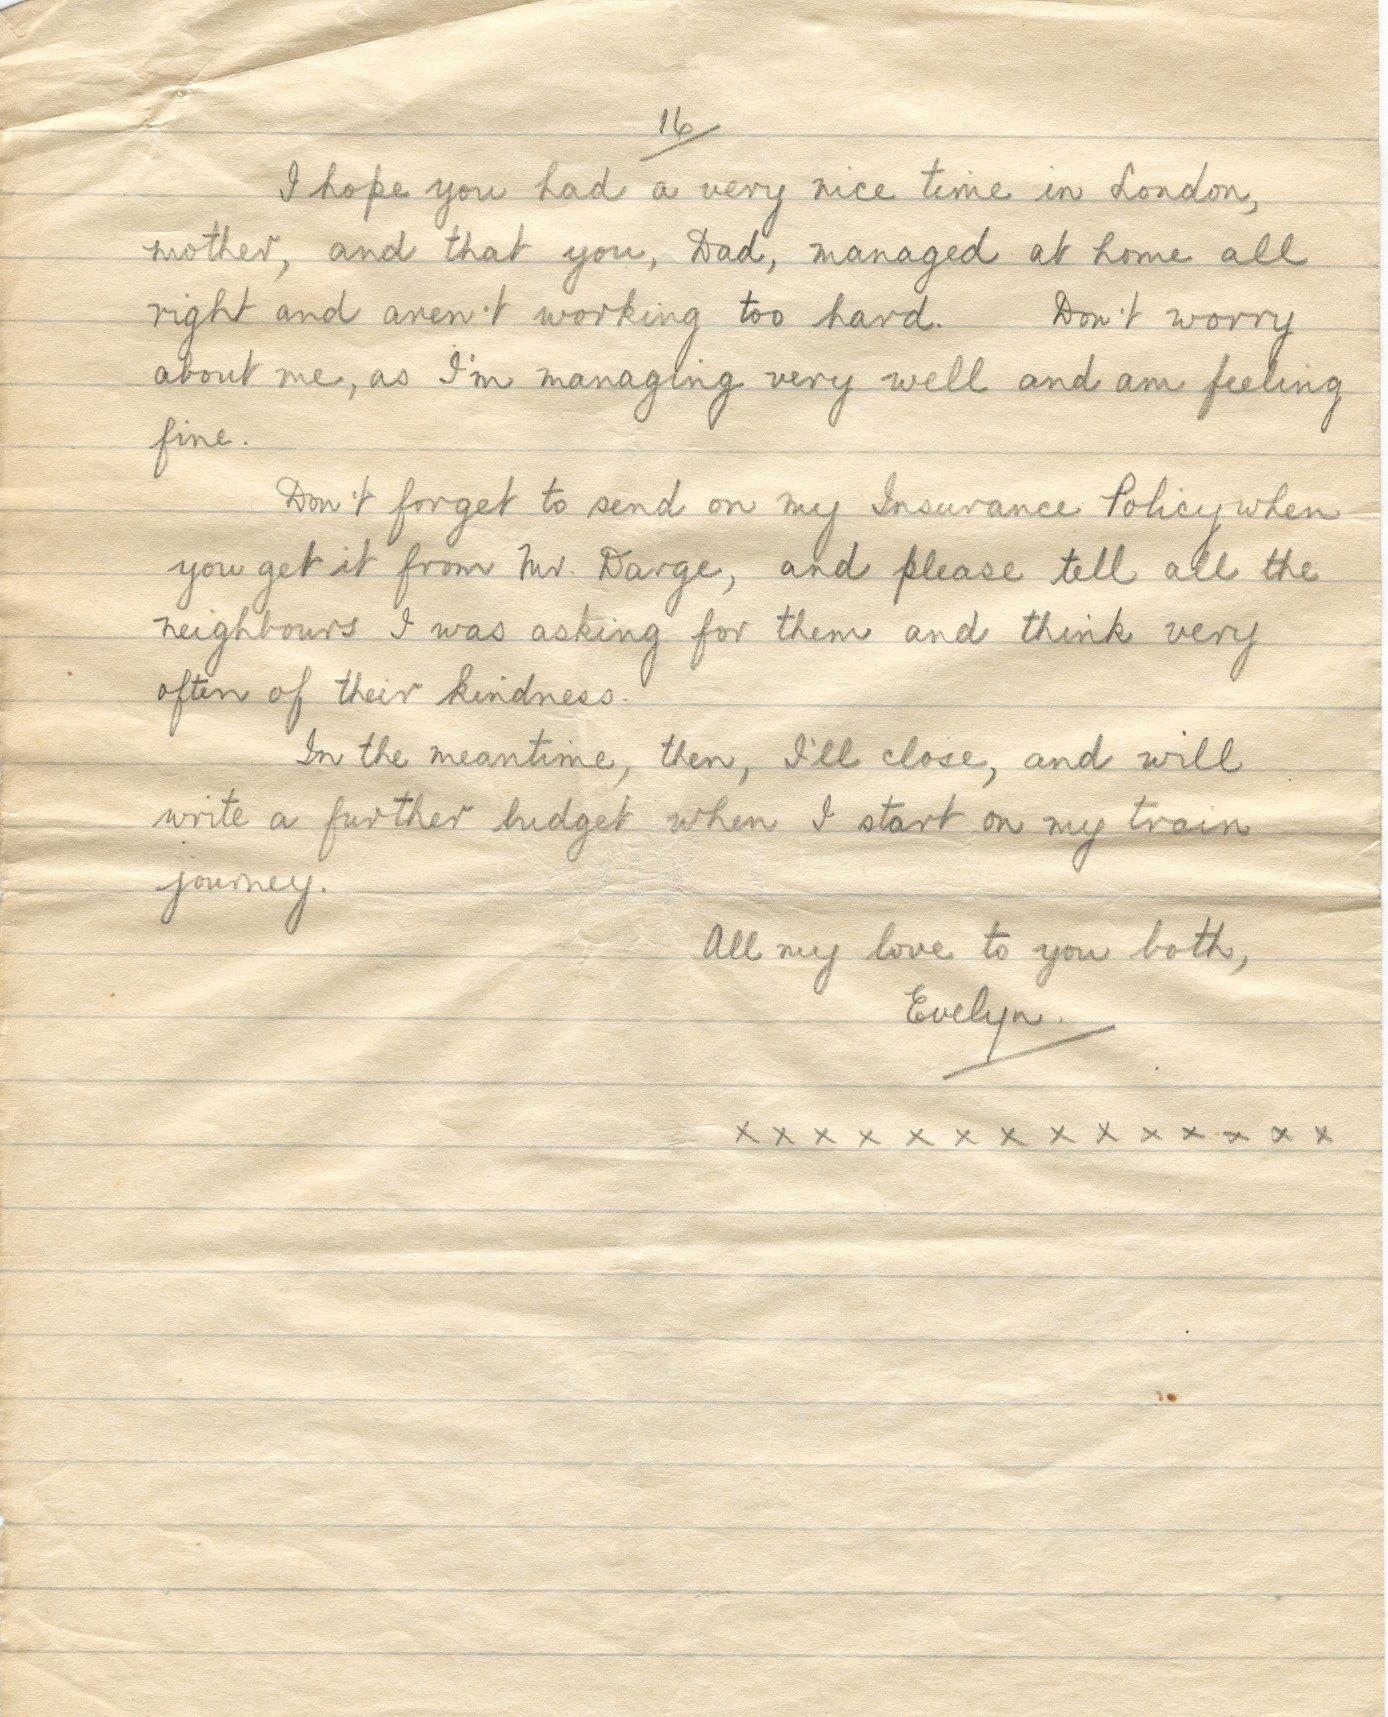 16
I hope you had a very nice time in London,
mother, and that you, Dad, managed at home all
right and aren't working too hard. Don't worry
about me, as I'm managing very well and am feeling
fine.
Don't forget to send on my Insurance Policy when
you get it from Mr. Darge, and please tell all the
neighbours I was asking for them and think very
often of their kindness.
In the meantime, then, I'll close, and will
write a further budget when I start on my train
journey.
All my love to you both,
Evelyn.
x x x x x x x x x x x x x x